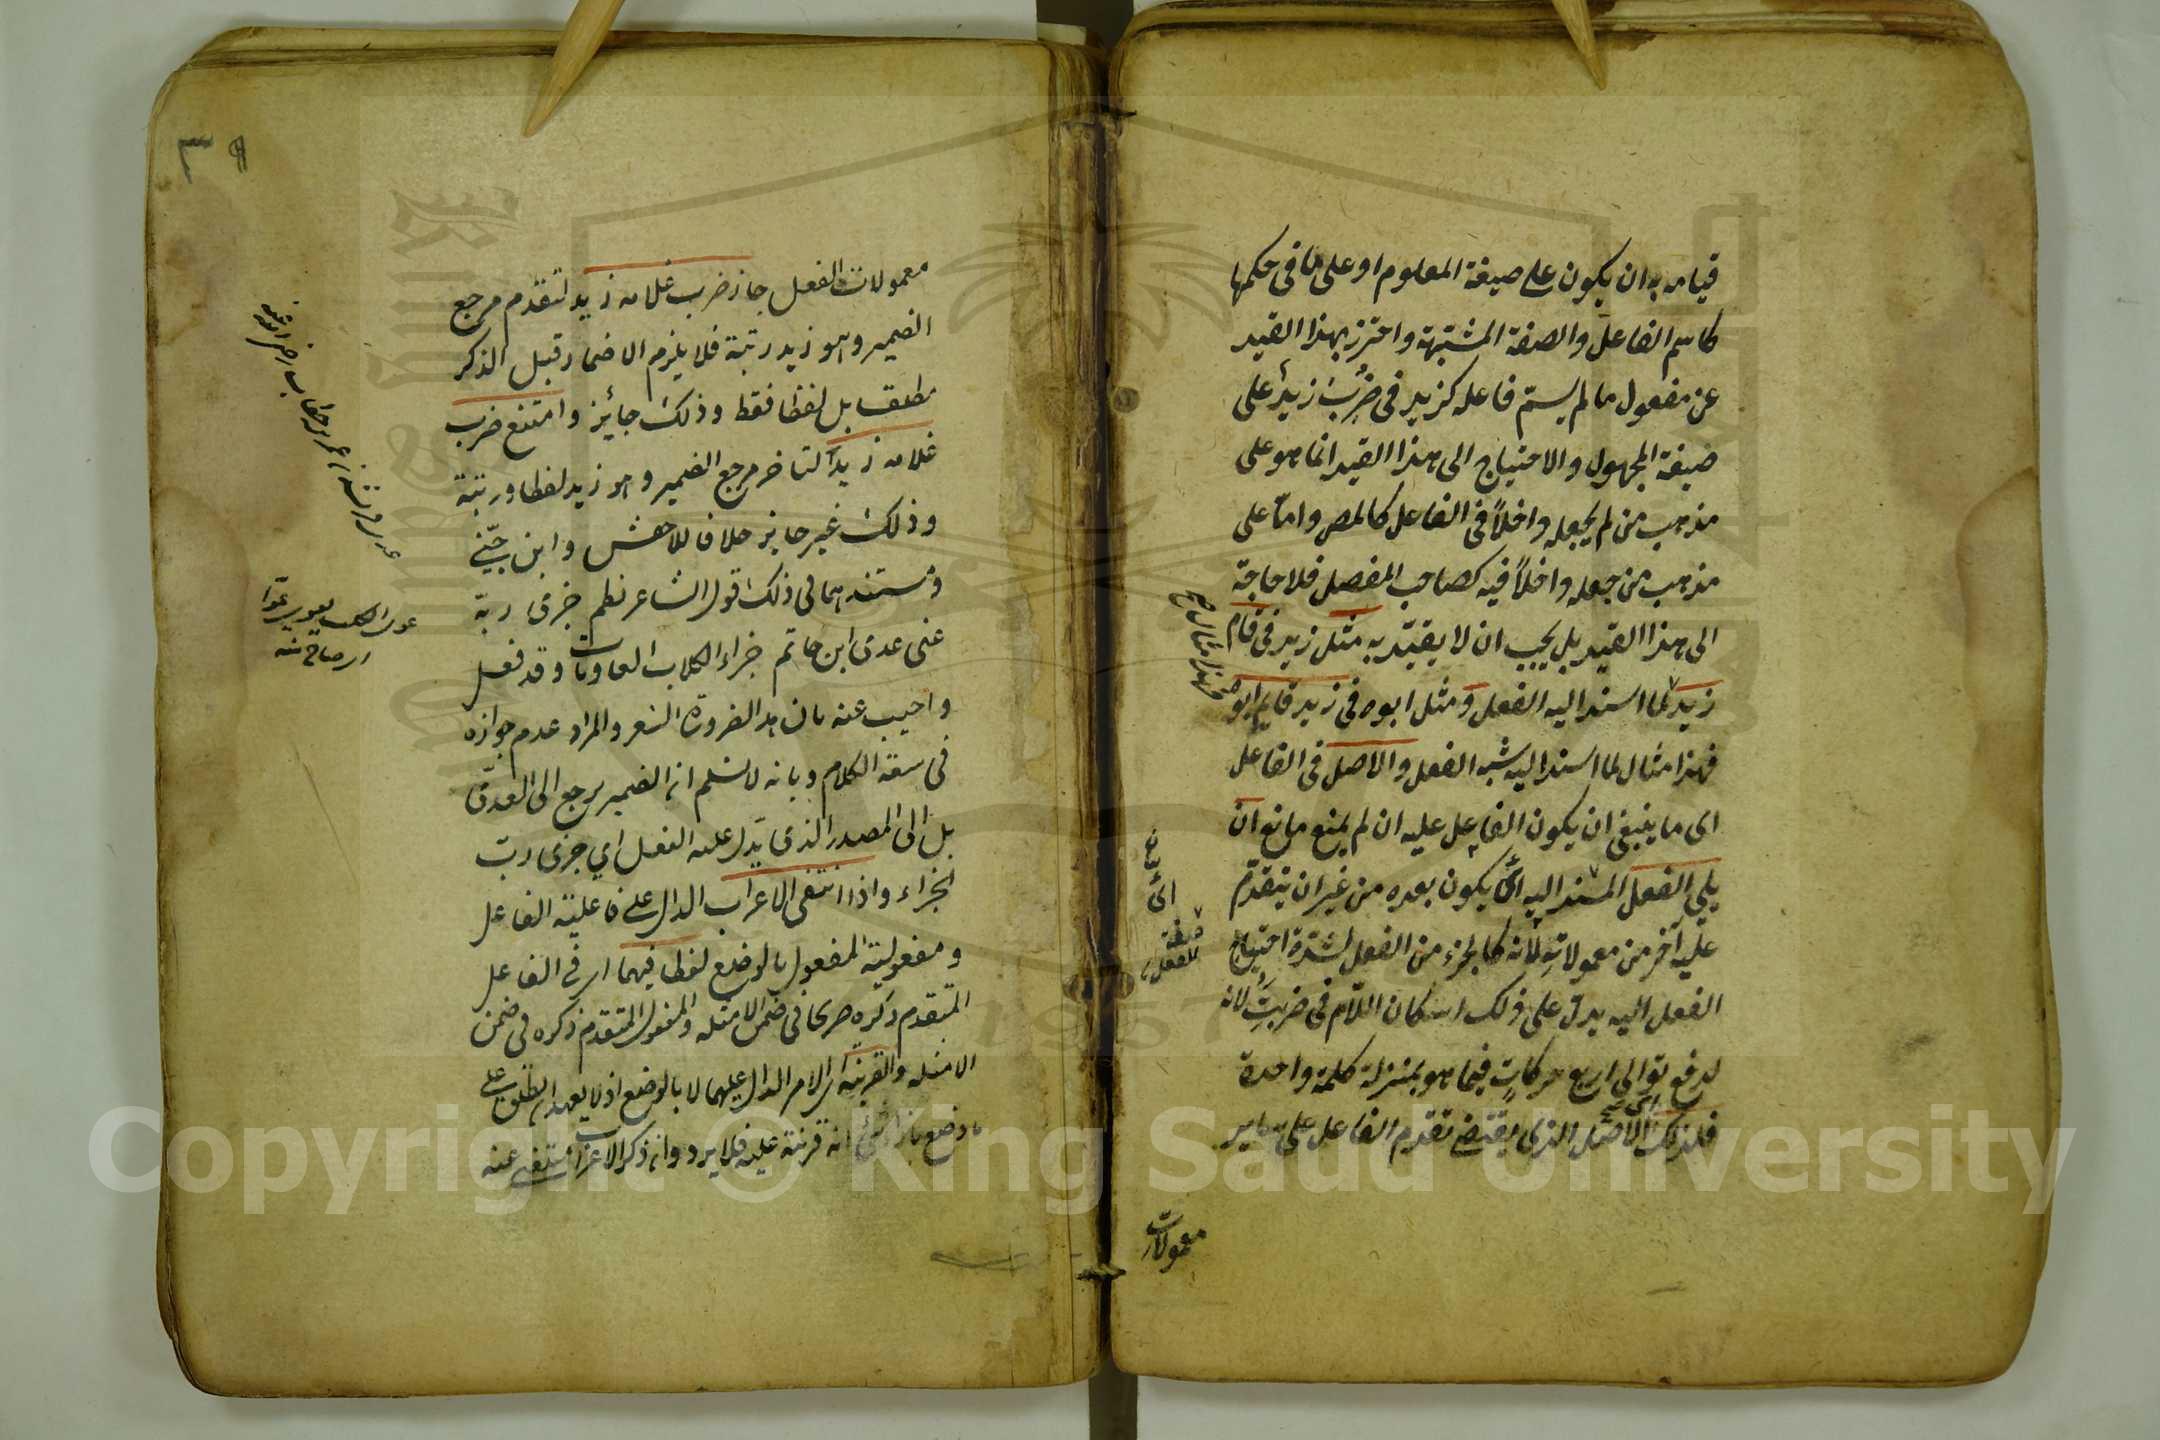 قيامه به ان يكون على صيغة المعلوم او على ما فى حكمها
كاسم الفاعل والصفة المشبهة واحترز بهذا القيد
عن مفعول ما لم يسم فاعله كزيد فى ضُرِبَ زيدٌ على
صيغة المجهول والاحتياج الى هذا القيد انما هو على
مذهب من لم يجعله داخلاً فى الفاعل كالمص واما على
مذهب من جعله داخلاً فيه كصاحب المفصل فلا حاجة
الى هذا القيد بل يجب ان لا يقيد به مثل زيد فى قام
زيد لما اسند اليه الفعل ومثل ابوه فى زيد قايم ابوه
فهذا مثال لما اسند اليه شبه الفعل والاصل فى الفاعل
اى ما ينبغى ان يكون الفاعل عليه ان لم يمنع مانع ان
يلي الفعل المسند اليه اى يكون بعده من غير ان يتقدم
عليه آخر من معمولاته لانه كالجزء من الفعل لشدة احتياج
الفعل اليه يدل على ذلك اسكان اللام فى ضربتُ لانه
لدفع توالى اربع حركاتٍ فيما هو بمنزلة كلمة واحدة
فلذلك الاصل الذى يقتضى تقدم الفاعل على ساير
فهذا مثال
اى
صفة
للفعل
معمولات
٣ ٩
معمولات الفعل جاز ضرب غلامه زيد لتقدم مرجع
الضمير وهو زيد رتبة فلا يلزم الاضمار قبل الذكر
مطلقا بل لفظا فقط وذلك جائز وامتنع ضرب
غلامه زيداً لتاخر مرجع الضمير وهو زيد لفظا ورتبة
وذلك غير جايز خلافا للاخفش وابن جنّي
ومستندهما فى ذلك قول الشاعر نظم جزى ربه
عنى عدى ابن حاتم جزاء الكلاب العاويات وقد فعل
واجيب عنه بان هذا لضرورة الشعر والمراد عدم جوازه
فى سعة الكلام وبانه لا نسلم ان الضمير يرجع الى العدىّ
بل الى المصدر الذى يدل عليه الفعل اي جزى ربّ
الجزاء واذا انتفى الاعراب الدال على فاعلية الفاعل
ومفعولية المفعول بالوضع لفظا فيهما اى فى الفاعل
المتقدم ذكره صريحا فى ضمن الامثلة والمفعول المتقدم ذكره فى ضمن
الامثلة والقرينة اى الامر الدال عليهما لا بالوضع اذ لا يعهد ان يطلق على
ما وضع بازاء شئ انه قرينة عليه فلا يرد وان ذكر الاعراب مستغنى عنه